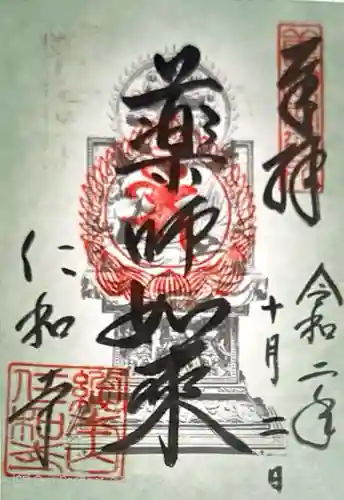 奉拝
令和二年
十月二日
薬師如来
仁和寺